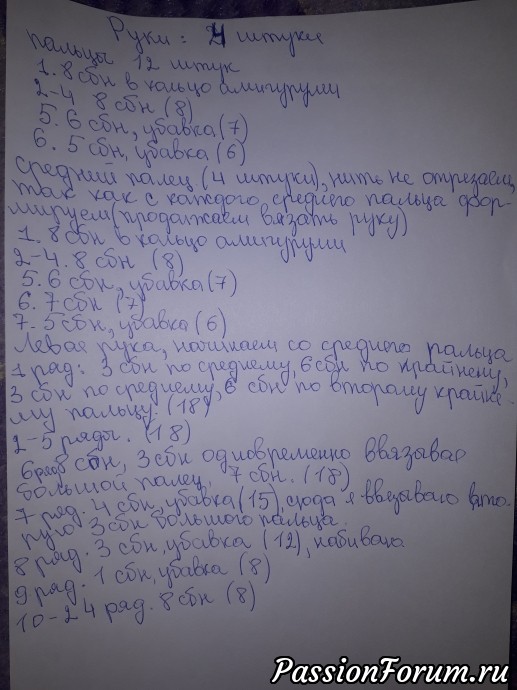 Руки: 4 штуки
пальцы 12 штук
1. 8 сбн в кольцо амигуруми
2-4 8 сбн (8)
5. 6 сбн, убавка (7)
6. 5 сбн, убавка (6)
Средний палец (4 штуки), нить не отрезаем,
так как с каждого среднего пальца фор-
мируем (продолжаем вязать руку)
1. 8 сбн в кольцо амигуруми
2-4. 8 сбн (8)
5. 6 сбн, убавка (7)
6. 7 сбн (7)
7. 5 сбн, убавка (6)
Левая рука, начинаем со среднего пальца
1 ряд: 3 сбн по среднему, 6 сбн по крайнему,
3 сбн по среднему, 6 сбн по второму крайне-
му пальцу. (18)
2-5 ряды. (18)
6 ряд сбн, 3 сбн одновременно ввязывая
большой палец, 7 сбн. (18)
7 ряд. 4 сбн, убавка (15), сюда я ввязываю вто-
рую 3 сбн большого пальца.
8 ряд. 3 сбн, убавка (12), набиваю
9 ряд. 1 сбн, убавка (8)
10-24 ряд. 8 сбн (8)
PassionForum.ru